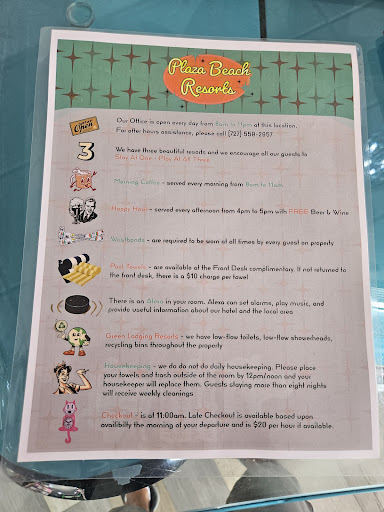 Plaza Beach
Resorts
Open
Our Office is open every day from 8am to 11pm at this location.
For after hours assistance, please call (727) 559-2957
3
We have three beautiful resorts and we encourage all our guests to
Stay At One - Play At All Three
Morning Coffee - served every morning from 8am to 11am
Happy Hour - served every afternoon from 4pm to 5pm with FREE Beer & Wine
Wristbands - are required to be worn at all times by every guest on property
Pool Towels - are available at the Front Desk complimentary. If not returned to
the front desk, there is a $10 charge per towel
There is an Alexa in your room. Alexa can set alarms, play music, and
provide useful information about our hotel and the local area
Green Lodging Resorts - we have low-flow toilets, low-flow showerheads,
recycling bins throughout the property
Housekeeping - we do do not do daily housekeeping. Please place
your towels and trash outside of the room by 12pm/noon and your
housekeeper will replace them. Guests staying more than eight nights
will receive weekly cleanings
Checkout - is at 11:00am. Late Checkout is available based upon
availibilty the morning of your departure and is $20 per hour if available.